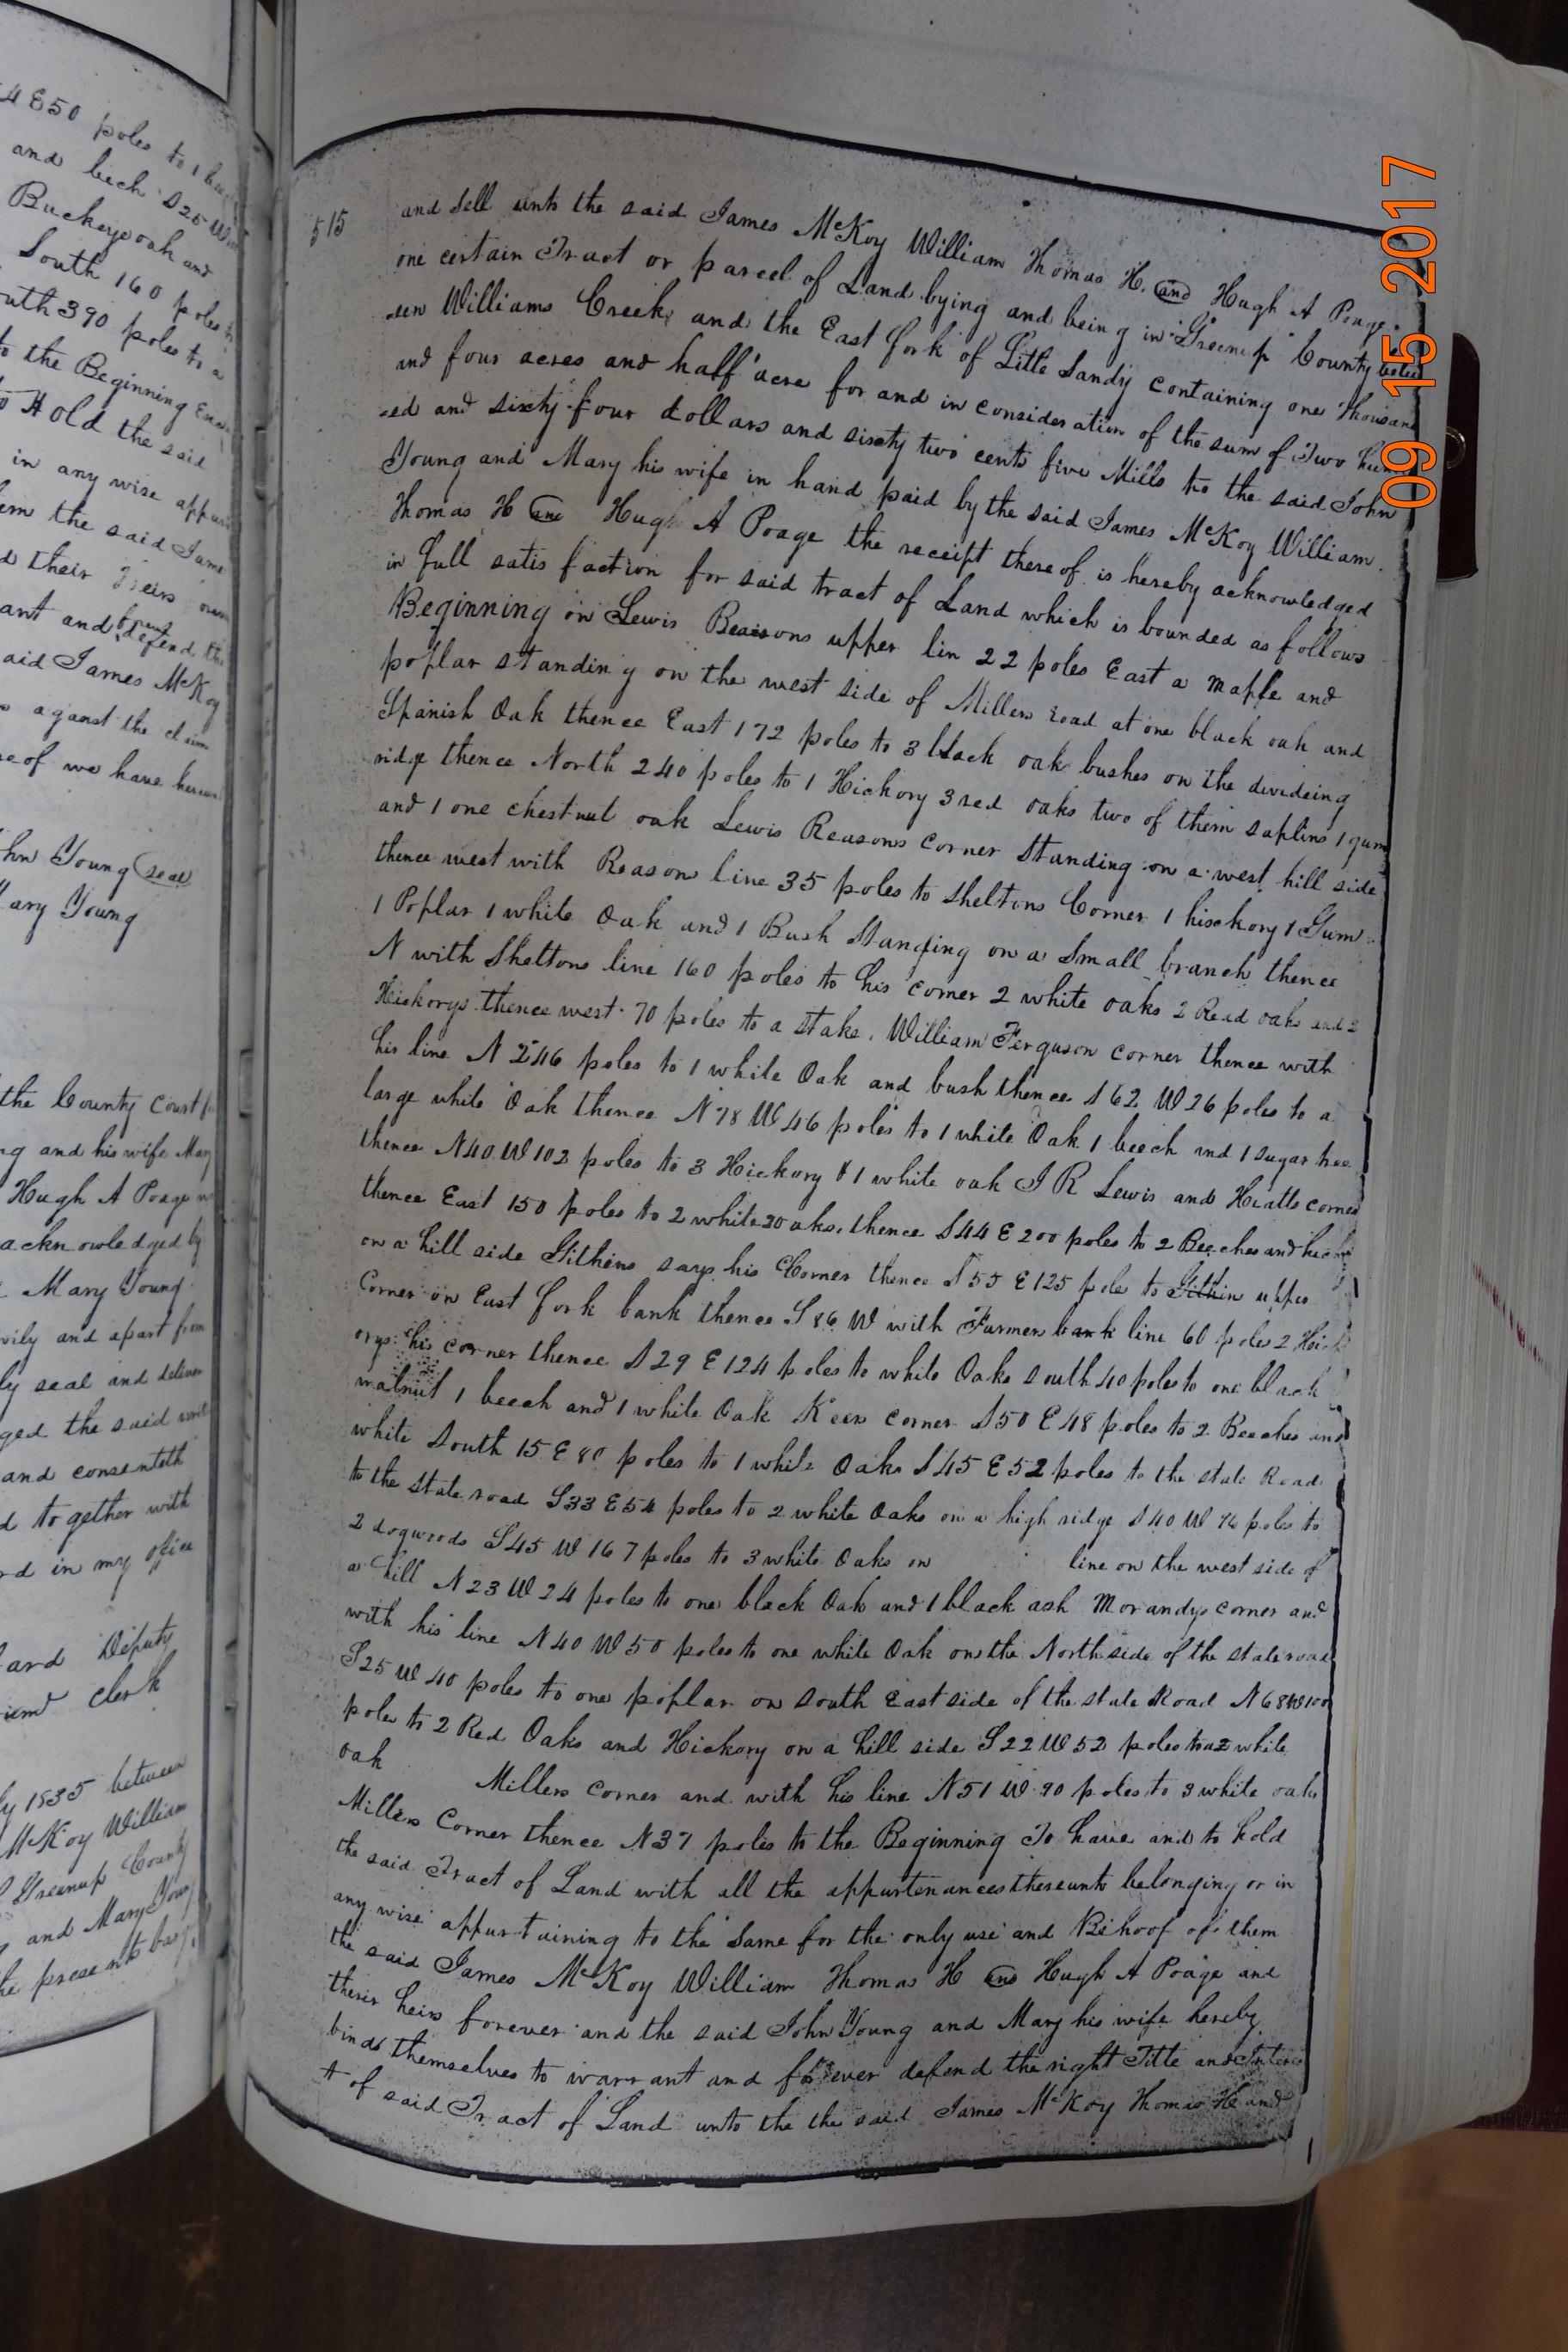 4 E50 poles to 1
and bech S25 W
Buckeye oak and
South 160 poles
uth 390 poles to a
to the Beginning
o Hold the said
in any wise
em the said
d their Heirs
ant and defend the
aid James McKoy
s aganst the claim
reof we have
hn Young (seal)
ary Young
the County Court
ng and his wife Mary
Hugh A Poage
acknowledged by
Mary Young
vily and apart from
ly seal and deliver
ged the said
and consenteth
d together with
rd in my office
ard Deputy
clerk
ly 1835 between
McKoy William
Greenup County
and Mary
the presents
515
and sell unto the said James McKoy William Thomas H. and Hugh A Poage
one certain Tract or parcel of Land bying and being in Greenup County betw
een Williams Creek and the East fork of Litle Sandy containing one Thousan
and four acres and half acre for and in consideration of the sum of Two hun
ed and sixty four dollars and sixty two cents five Mills to the said John
Young and Mary his wife in hand paid by the said James McKoy William
Thomas H and Hugh A Poage the receipt thereof is hereby acknowledged
in full satisfaction for said tract of Land which is bounded as follows
Beginning on Lewis Reasons upper lin 22 poles East a maple and
poplar standing on the west side of Millers road at one black oak and
Spanish Oak thence East 172 poles to 3 black oak bushes on the divideing
ridge thence North 240 poles to 1 Hickory 3 red oaks two of them saplins 1 gum
and 1 one chestnut oak Lewis Reasons corner standing on a west hill side
thence west with Reason line 35 poles to Sheltons Corner 1 hisckory 1 Gum
1 Poplar 1 white Oak and 1 Bush Standing on a Small branch thence
N with Sheltons line 160 poles to his corner 2 white oaks 2 Read oaks and 2
Hickorys thence west 70 poles to a stake. William Ferguson corner thence with
his line N 246 poles to 1 white Oak and bush thence S 62 W 26 poles to a
large white Oak thence N 78 W 46 poles to 1 white Oak 1 beech and 1 sugar tree
thence N40 W 102 poles to 3 Hickory & 1 white oak J R Lewis and Hiatts corner
thence East 150 poles to 2 white oaks. thence S44 E 200 poles to 2 Beeches and
on a hill side Githins says his Corner thence S 55 E 125 pole to Githin upper
Corner on East fork bank thence S 86 W with Furmers bank line 60 poles 2 Hick
orys his corner thence S 29 E 124 poles to white Oaks South 40 poles to one black
walnut 1 beech and 1 white Oak Keers corner S50 E 48 poles to 2 Beeches and
white South 15 E 80 poles to 1 white Oaks S45 E 52 poles to the state Road
to the state road S33 E 54 poles to 2 white Oaks on a high ridge S 40 W 76 poles to
2 dogwoods S45 W 167 poles to 3 white Oaks on line on the west side of
a hill N 23 W 24 poles to one black Oak and 1 black ash Morandys corner and
with his line N 40 W 50 poles to one white Oak on the North side of the state road
S25 W 40 poles to one poplar on South East side of the state Road N 68 W 100
poles to 2 Red Oaks and Hickory on a hill side S 22 W 52 poles to a 2 white
oak Millers corner and with his line N 51 W 90 poles to 3 white oaks
Millers Corner thence N 37 poles to the Beginning To have and to hold
the said Tract of Land with all the appurtenances thereunto belonging or in
any wise appurtaining to the same for the only use and Behoof of them
the said James McKoy William Thomas H and Hugh A Poage and
their heirs forever and the said John Young and Mary his wife hereby
binds themselves to warrant and forever defend the right Title and Interes
t of said Tract of Land unto the the said James McKoy Thomas H and
09 15 2017